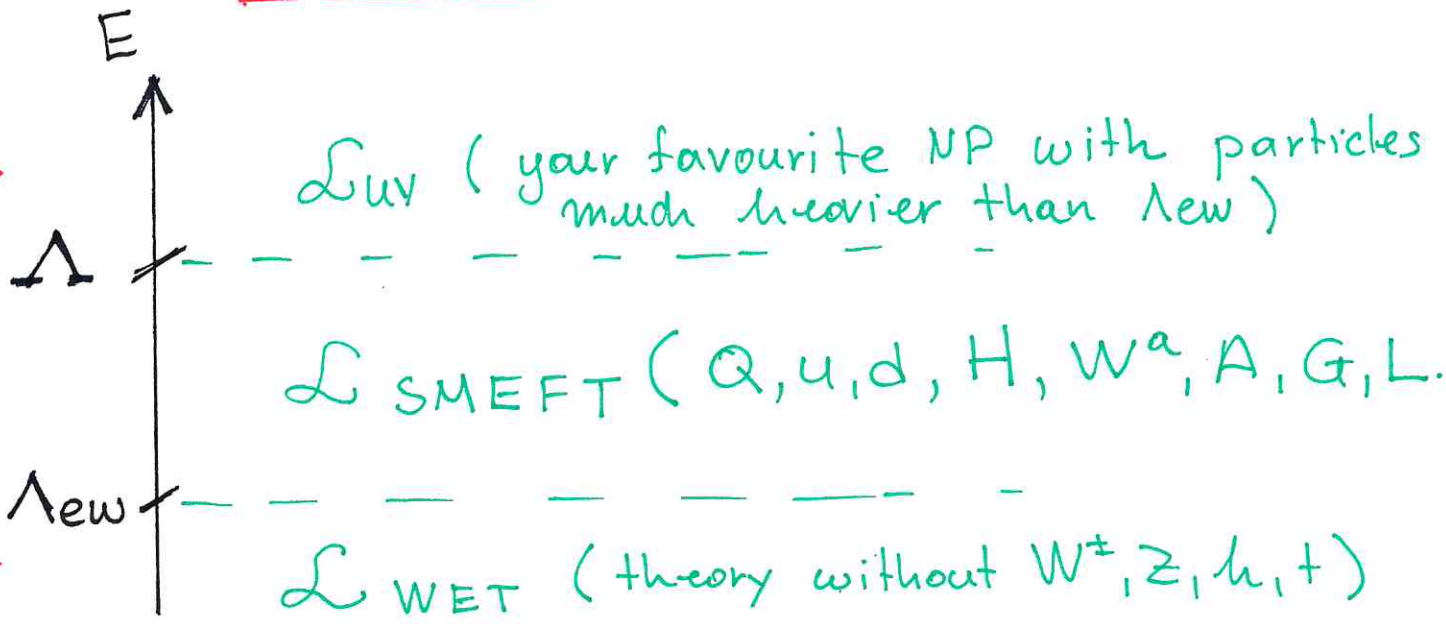 E
ℒ UV ( your favourite NP with particles
much heavier than Λew )
Λ
ℒ SMEFT ( Q, u, d, H, Wᵃ, A, G, L.
Λew
ℒ WET ( theory without W±, Z, h, t )